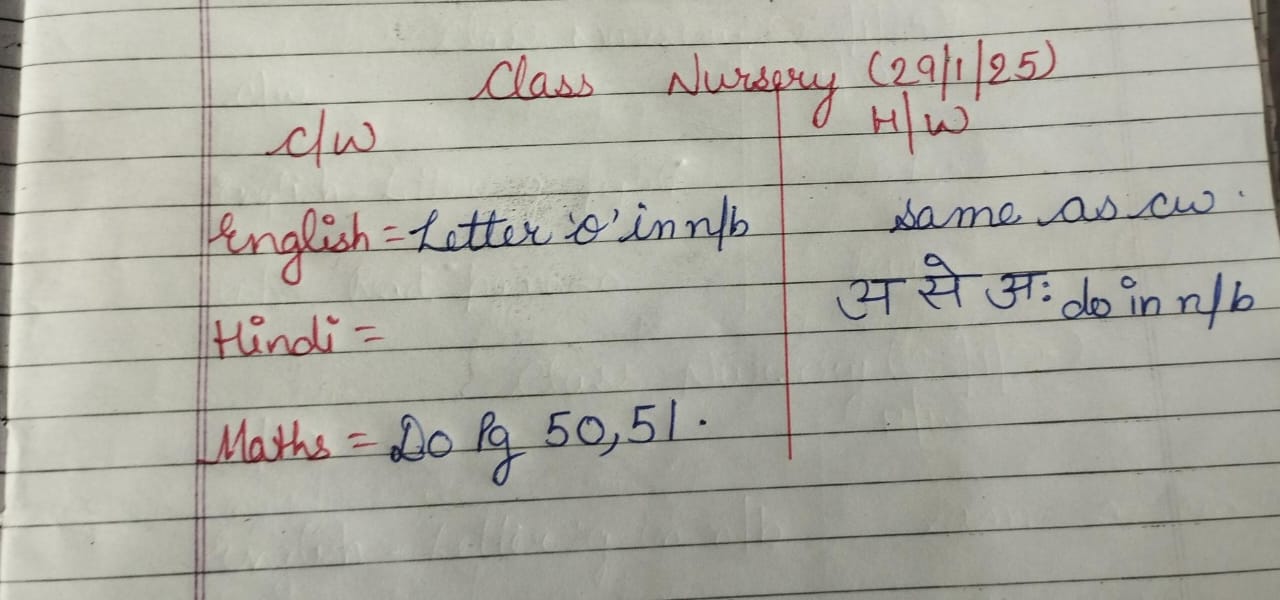 Class Nursery (29/1/25)
C/W H/W
English = Letter 'o' in n/b same as cw.
Hindi = अ से अः do in n/b
Maths = Do Pg 50, 51.